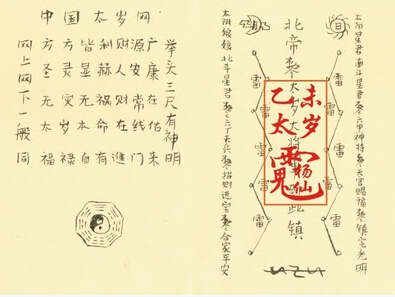 中国太岁网
举头三尺有神明
方方皆利财源广
圣灵显赫人安康
无灾无祸财常在
太岁本命在线佑
福禄自有進门来
网上网下一般同
太阳星君南斗星君奉六甲神将奉天官赐福奉镇宅光明
雷
雷
雷
雷
北帝奉太岁大将军 此镇
未岁杨仙
乙太
雷
雷
雷
雷
太阴娘娘北斗星君奉六丁天兵奉招财进宝奉合家平安